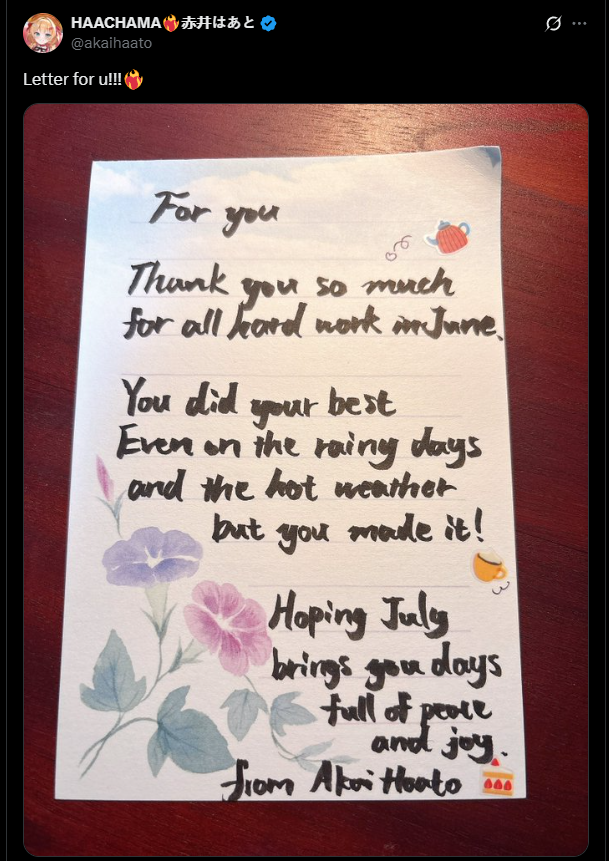 HAACHAMA❤️‍🔥赤井はあと
@akaihaato
Letter for u!!!❤️‍🔥
For you
Thank you so much
for all hard work in June.
You did your best
Even on the rainy days
and the hot weather
but you made it!
Hoping July
brings you days
full of peace
and joy.
from Akai Haato